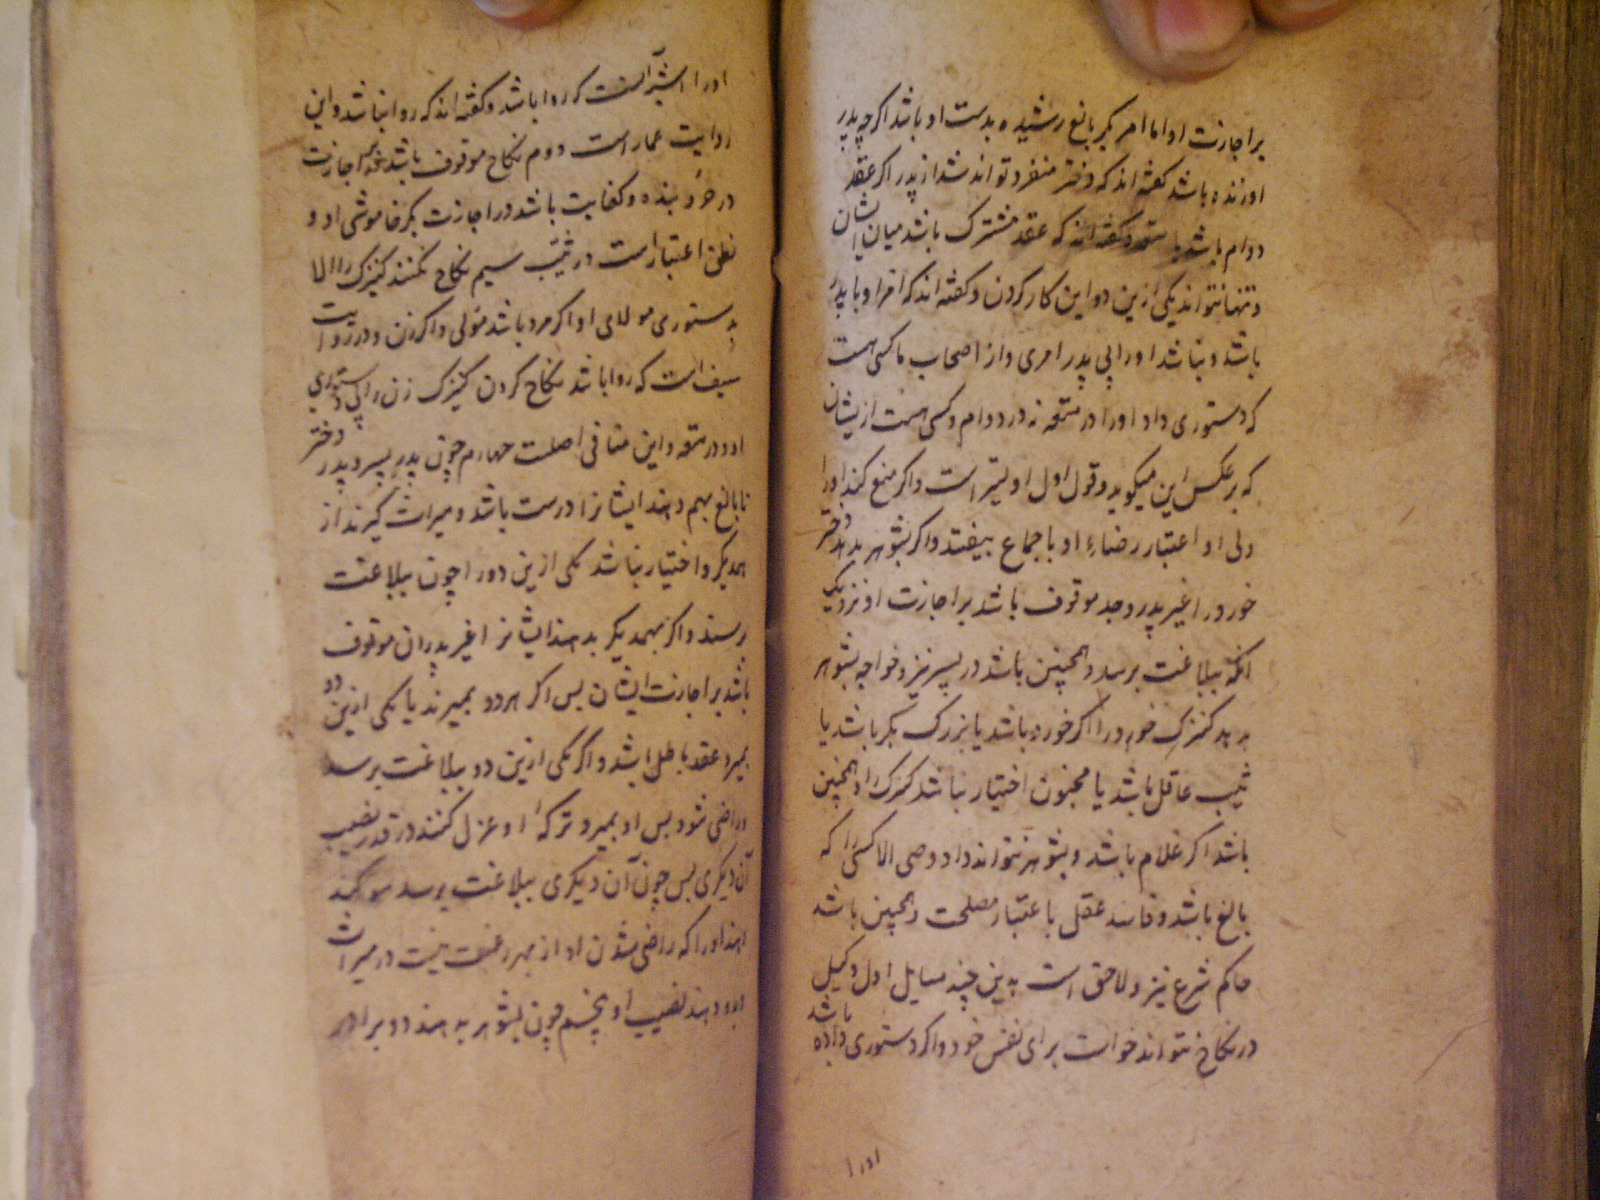 بر اجازت او اما امر بکر بالغ رشیده بدست او باشد اکرچه پدر
او زنده باشد کفته اند که دختر منفرد تواند شد از پدر اکر عقد
دوام باشد یا متعه و کفته اند که عقد مشترک باشد میان ایشان
و تنها نتواند یکی ازین دو این کار کردن و کفته اند که امر او با پدر
باشد و نباشد او را با پدر امری و از اصحاب ما کسی هست
که دستوری داد او را در متعه نه در دوام و کسی هست ازیشان
که بر عکس این میکوید و قول اول اولیتر است و اکر منع کند او را
ولی او اعتبار رضاء او باجماع بیفتد و اکر بشوهر بدهد دختر
خورد را غیر پدر و جد موقوف باشد بر اجازت او نزدیک
انکه ببلاغت برسد و همچنین باشد در پسر نیز و خواجه بشوهر
بدهد کنیزک خود را اکر خورد باشد یا بزرک بکر باشد یا
ثیب عاقل باشد یا مجنون اختیار نباشد کنیزک را و همچنین
باشد اکر غلام باشد و بشوهر نتواند داد وصی الا کسی را که
بالغ باشد و فاسد عقل باعتبار مصلحت و همچنین باشد
حاکم شرع نیز و لاحق است بدین چند مسایل اول وکیل
در نکاح نتواند خواست برای نفس خود و اکر دستوری داده باشد
اورا
اورا اشبه آنست که روا باشد و کفته اند که روا نباشد و این
روایت عمار است دوم نکاح موقوف باشد بر اجازت
در حر و بنده و کفایت باشد در اجازت بکر خاموشی او و
نطق اعتبار است در ثیب سیم نکاح نکنند کنیزک را الا
بدستوری مولای او اکر مرد باشد مولی و اکر زن و در روایت
سیف است که روا باشد نکاح کردن کنیزک زن را بی دستوری
او در متعه و این منافی اصلست چهارم چون پدر پسر و پدر دختر
نابالغ بهم دهند ایشانرا درست باشد و میراث کیرند از
همدیکر و اختیار نباشد یکی ازین دو را چون ببلاغت
برسند و اکر بهمدیکر بدهند ایشانرا غیر پدران موقوف
باشد بر اجازت ایشان پس اکر هر دو بمیرند یا یکی ازین دو
بمیرد عقد باطل باشد و اکر یکی ازین دو ببلاغت برسد
و راضی شود پس او بمیرد ترکهٔ او عزل کنند در قدر نصیب
آن دیکری پس چون آن دیکری ببلاغت برسد سوکند
دهند او را که راضی شدن او از بهر رغبت نیست در میراث
و بدو دهند نصیب او پنجم چون بشوهر بدهند دو برادر